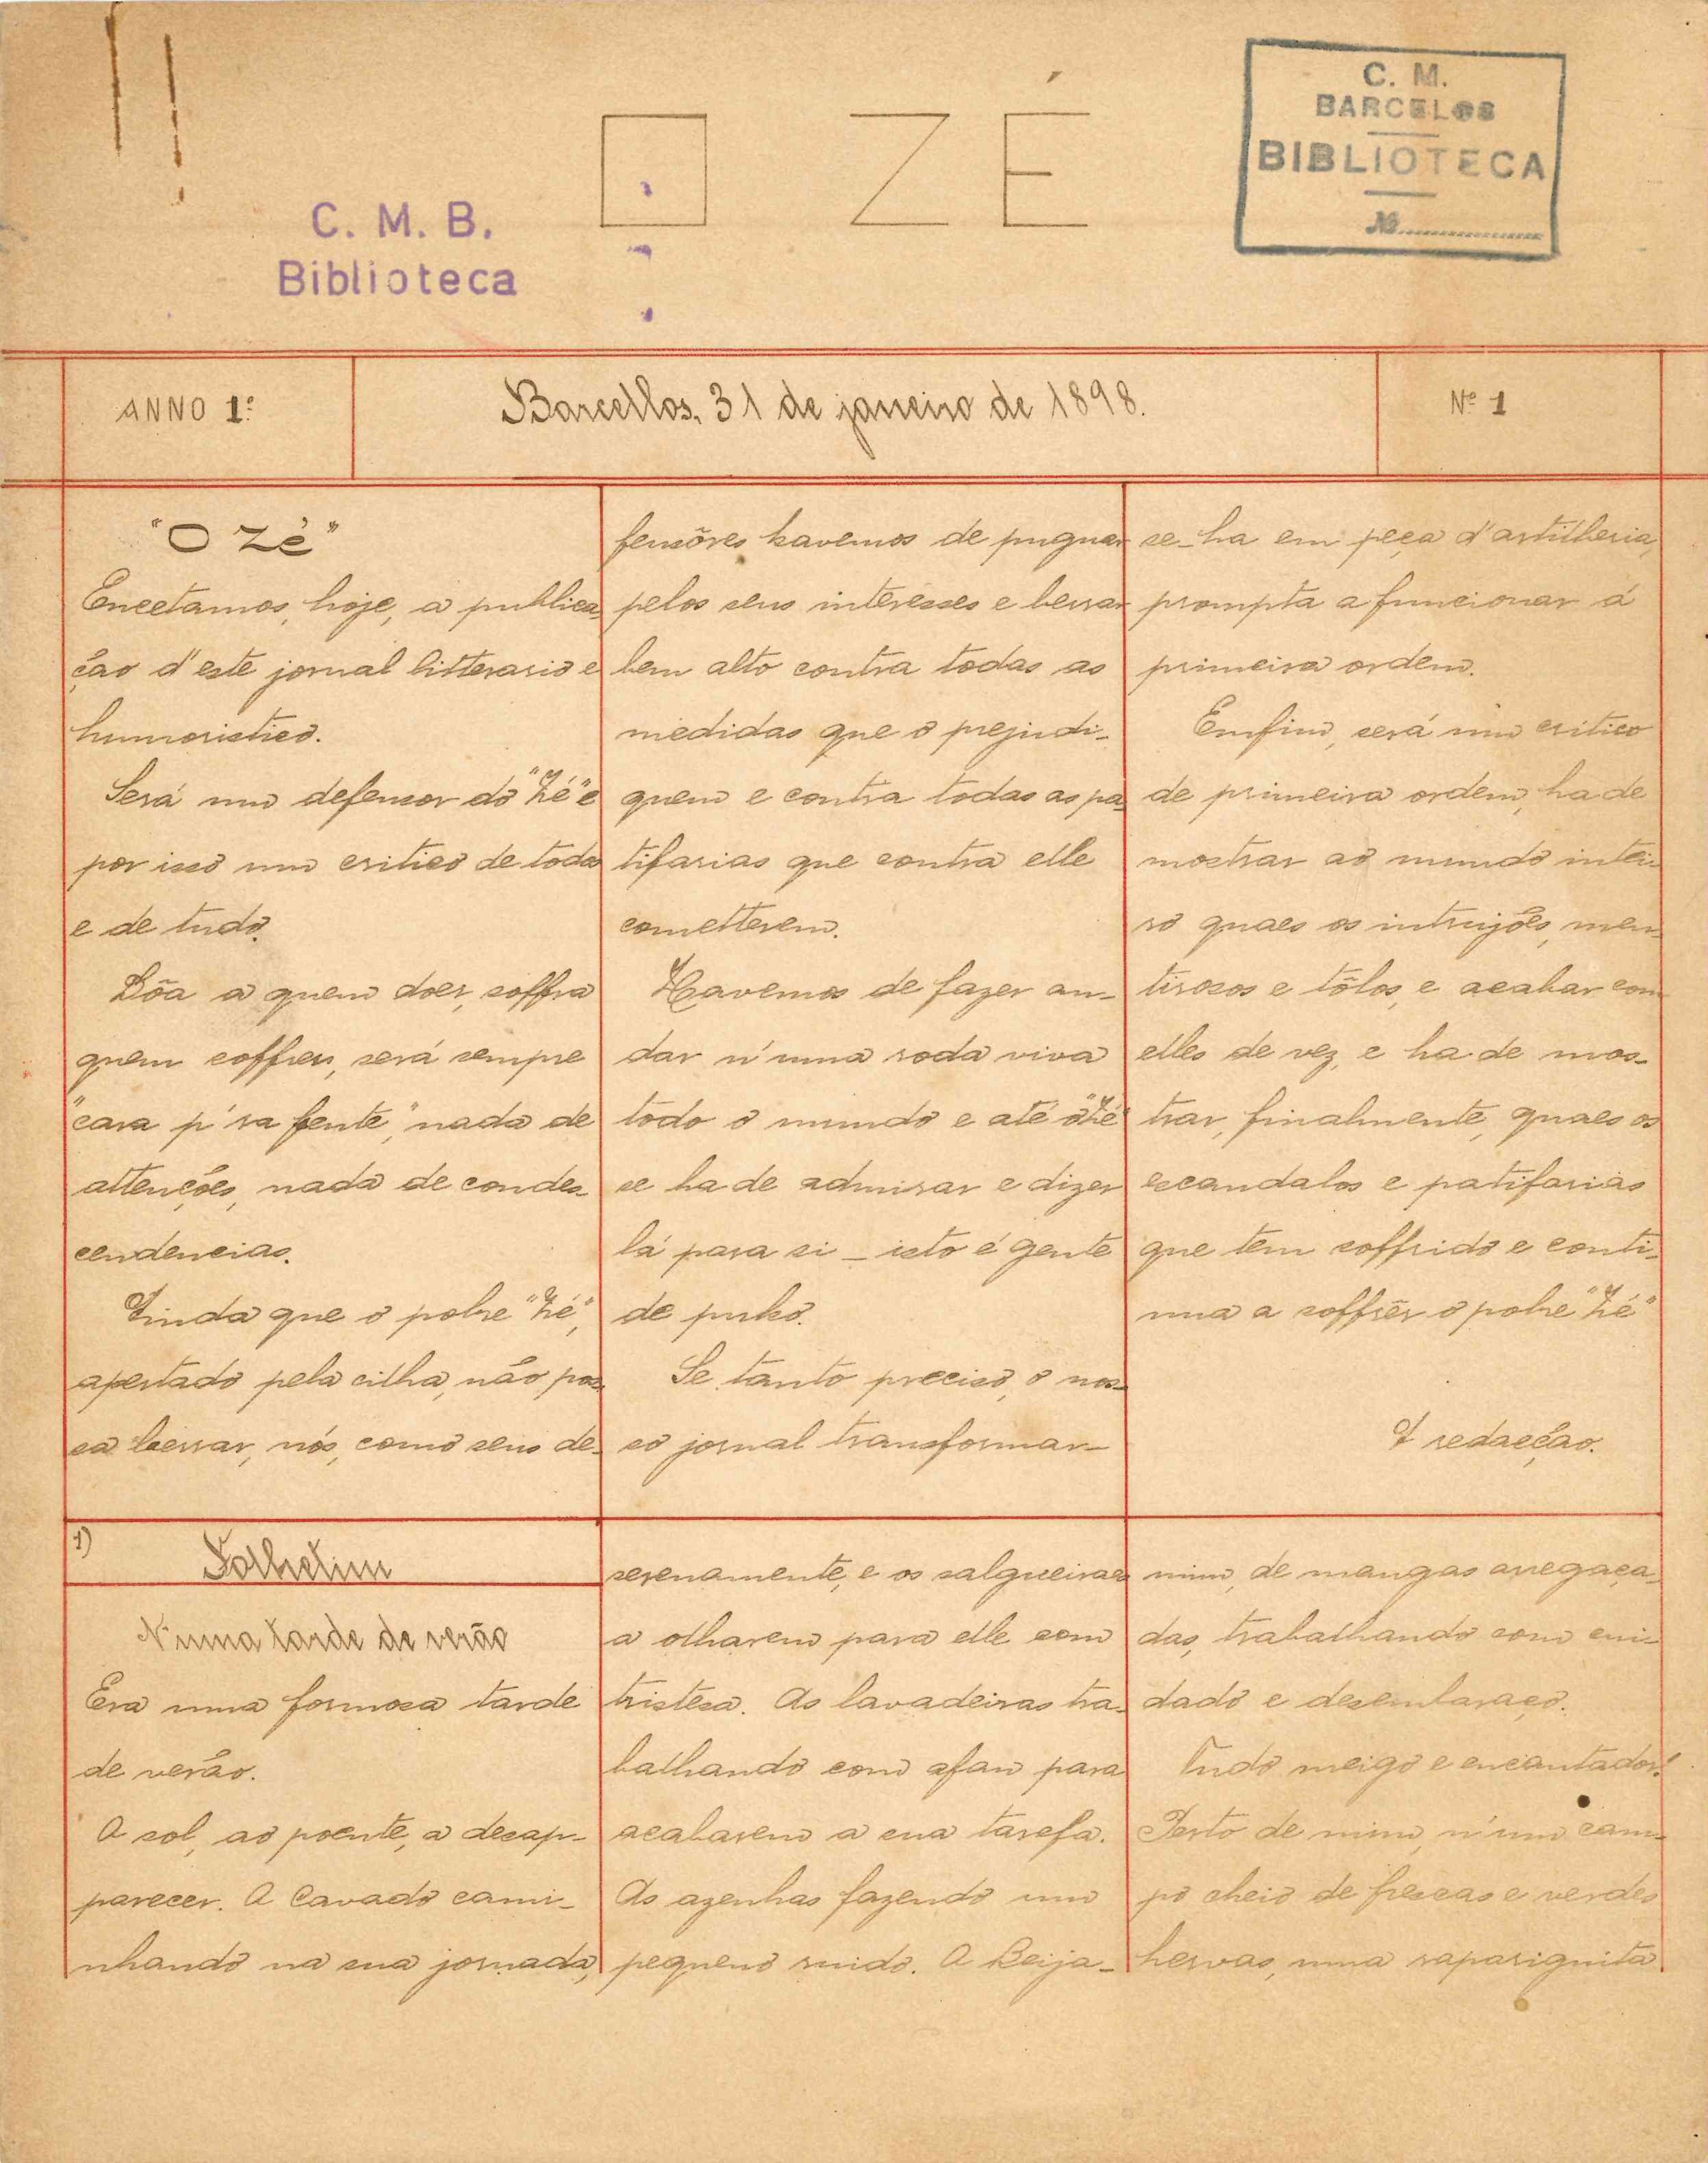 O ZÉ
C. M.
BARCELOS
BIBLIOTECA
Nº
C. M. B.
Biblioteca
ANNO 1º
Barcellos, 31 de janeiro de 1898.
Nº 1
"O Zé"
Encetamos, hoje, a publica-
ção d'este jornal litterario e
humoristico.
Será um defensor do "Zé" e
por isso um critico de todos
e de tudo.
Dôa a quem doer, soffra
quem soffrer, será sempre
"cara p'ra frente," nada de
attenções, nada de condes-
cendencias.
Ainda que o pobre "Zé",
apertado pela cilha, não pos-
sa berrar, nós, como seus de-
fensôres havemos de pugnar
pelos seus interesses e berrar
bem alto contra todas as
medidas que o prejudi-
quem e contra todas as pa-
tifarias que contra elle
cometterem.
Havemos de fazer an-
dar n'uma roda viva
todo o mundo e até o "Zé"
se ha de admirar e dizer
lá para si _ isto é gente
de pulso.
Se tanto preciso, o nos-
so jornal transformar-
se-ha em peça d'artilheria,
prompta a funcionar á
primeira ordem.
Emfim, será um critico
de primeira ordem, ha de
mostrar ao mundo intei-
ro quaes os intrujões, men-
tirosos e tôlos, e acabar com
elles de vez, e ha de mos-
trar, finalmente, quaes os
escandalos e patifarias
que tem soffrido e conti-
nua a soffrêr o pobre "Zé"
A redacção.
1)
Folhetim
N'uma tarde de verão
Era uma formosa tarde
de verão.
O sol, ao poente, a desap-
parecer. O Cavado cami-
nhando na sua jornada,
serenamente, e os salgueiraes
a olharem para elle com
tristesa. As lavadeiras tra-
balhando com afan para
acabarem a sua tarefa.
As azenhas fazendo um
pequeno ruido. O Beija-
mim, de mangas arregaça-
das, trabalhando com cui-
dado e desembaraço.
Tudo meigo e encantador!
Perto de mim, n'um cam-
po cheio de frescas e verdes
hervas, uma rapariguita